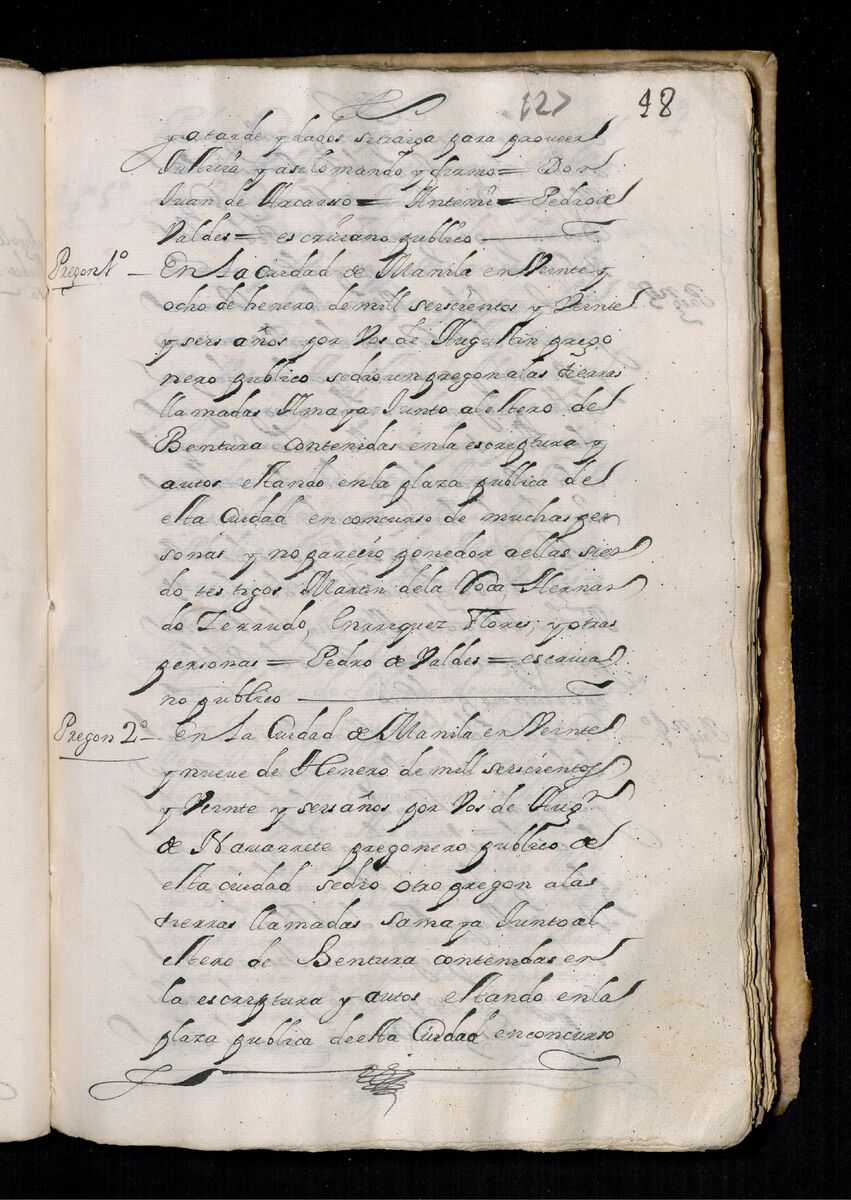 127 48
y a tarde y dados se traiga para proveer
Justicia y asi lo mando y firmo = Don
Juan de Alcarasso = Antemi = Pedro de
Valdes = escrivano publico
Pregon 1º En La ciudad de Manila en Veinte y
ocho de henero de mill seiscientos y Veinte
y seis años por Vos de Augustin prego
nero publico sedio un pregon alas tierras
llamadas Amaya Junto al estero de
Bentura contenidas en la escreptura y
autos estando en la plaza publica de
esta Ciudad en concurso de muchas per
sonas y no pareçio ponedor a ellas sien
do testigos Martin dela Voda, Hernan
do Terrudo, Enrriquez Flores, y otras
personas = Pedro de Valdes = escriva
no publico
Pregon 2º En La Ciudad de Manila en Veinte
y nueve de Henero de mill seiscientos
y Veinte y seis años por Vos de Augⁿ
de Navarrete pregonero publico de
esta ciudad sedio otro pregon alas
tierras llamadas Samaya Junto al
estero de Bentura contenidas en
la escreptura y autos estando en la
plaza publica de esta Ciudad en concurso